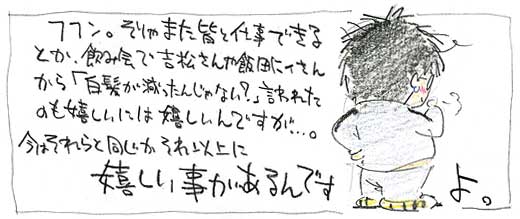 フフン。そりゃまた皆と仕事できる
とか、飲み会で吉松さんや飯田にィさん
から「白髪が減ったんじゃない?」言われた
のも嬉しいには嬉しいんですが…。
今はそれらと同じかそれ以上に
嬉しい事があるんです
よ。